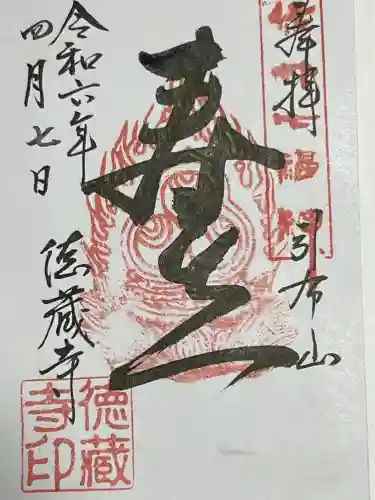 奉拝
福神
引布山
令和六年
四月七日
徳蔵寺
徳蔵
寺印